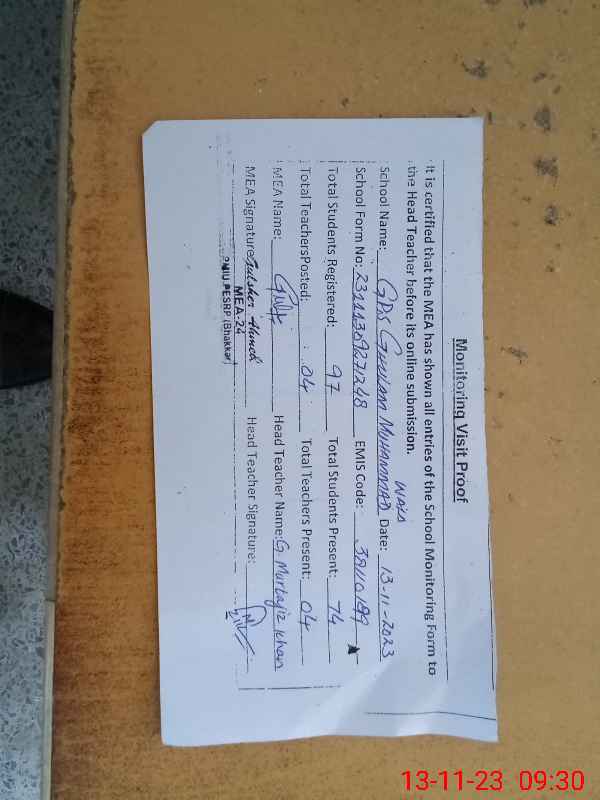 Monitoring Visit Proof
It is certified that the MEA has shown all entries of the School Monitoring Form to
the Head Teacher before its online submission.
wala
School Name: GPS Gulam MUHAMMAD Date: 13-11-2023
School Form No: EMIS Code: 38110199
Total Students Registered: 97 Total Students Present: 74
Total TeachersPosted: 04 Total Teachers Present: 04
MEA Name: Head Teacher Name: G. Murtajiz Khan
MEA Signature: Gulsher Ahmed Head Teacher Signature:
MEA-24
PMIU PESRP (Bhakkar)
13-11-23 09:30